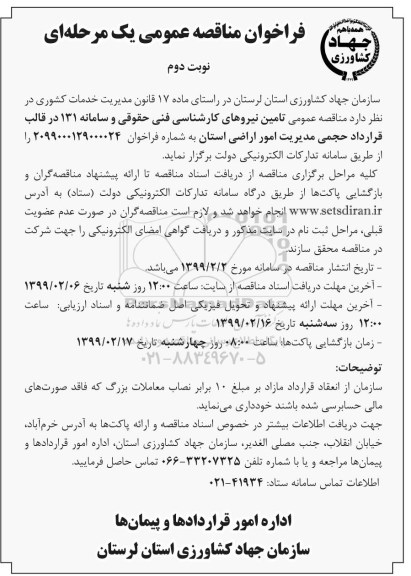 همه با هم
جهاد
کشاورزی
فراخوان مناقصه عمومی یک مرحله‌ای
نوبت دوم
سازمان جهاد کشاورزی استان لرستان در راستای ماده ۱۷ قانون مدیریت خدمات کشوری در
نظر دارد مناقصه عمومی تامین نیروهای کارشناسی فنی حقوقی و سامانه ۱۳۱ در قالب
قرارداد حجمی مدیریت امور اراضی استان به شماره فراخوان ۲۰۹۹۰۰۰۱۲۹۰۰۰۰۲۴ را
از طریق سامانه تدارکات الکترونیکی دولت برگزار نماید.
کلیه مراحل برگزاری مناقصه از دریافت اسناد مناقصه تا ارائه پیشنهاد مناقصه‌گران و
بازگشایی پاکت‌ها از طریق درگاه سامانه تدارکات الکترونیکی دولت (ستاد) به آدرس
www.setsdiran.ir انجام خواهد شد و لازم است مناقصه‌گران در صورت عدم عضویت
قبلی، مراحل ثبت نام در سایت مذکور و دریافت گواهی امضای الکترونیکی را جهت شرکت
در مناقصه محقق سازند.
- تاریخ انتشار مناقصه در سامانه مورخ ۱۳۹۹/۲/۲ می‌باشد.
- آخرین مهلت دریافت اسناد مناقصه از سایت: ساعت ۱۲:۰۰ روز شنبه تاریخ ۱۳۹۹/۰۲/۰۶
- آخرین مهلت ارائه پیشنهاد و تحویل فیزیکی اصل ضمانتنامه و اسناد ارزیابی: ساعت
۱۲:۰۰ روز سه‌شنبه تاریخ ۱۳۹۹/۰۲/۱۶
- زمان بازگشایی پاکت‌ها: ساعت ۰۸:۰۰ روز چهارشنبه تاریخ ۱۳۹۹/۰۲/۱۷
۰۲۱-۸۸۳۴۹۶۷۰-۵
توضیحات:
سازمان از انعقاد قرارداد مازاد بر مبلغ ۱۰ برابر نصاب معاملات بزرگ که فاقد صورت‌های
مالی حسابرسی شده باشند خودداری می‌نماید.
جهت دریافت اطلاعات بیشتر در خصوص اسناد مناقصه و ارائه پاکت‌ها به آدرس خرم‌آباد،
خیابان انقلاب، جنب مصلی الغدیر، سازمان جهاد کشاورزی استان، اداره امور قراردادها و
پیمان‌ها مراجعه و یا با شماره تلفن ۳۳۲۰۷۳۲۵-۰۶۶ تماس حاصل فرمایید.
اطلاعات تماس سامانه ستاد: ۴۱۹۳۴-۰۲۱
اداره امور قراردادها و پیمان‌ها
سازمان جهاد کشاورزی استان لرستان